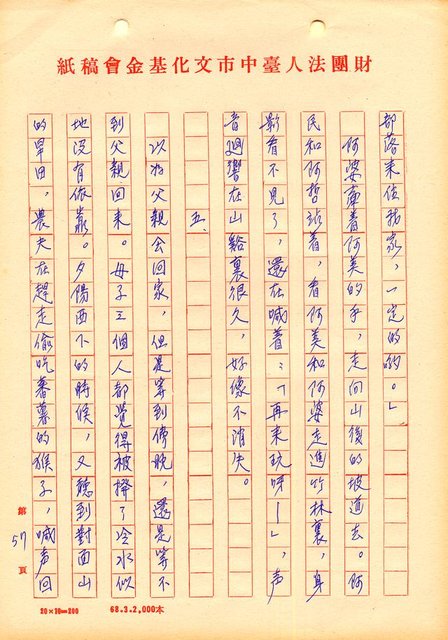 財團法人臺中市文化基金會稿紙
部落來住我家，一定的的。」
阿婆牽着阿美的手，走向山後的坡道去。阿
民和阿哲站着，看阿美和阿婆走進竹林裏，身
影看不見了，還在喊着：「再來玩呀—」，声
音迴響在山谿裏很久，好像不消失。
五、
以為父親会回家，但是等到傍晚，還是等不
到父親回来。母子三個人都覺得被撥了冷水似
地没有依靠。夕陽西下的時候，又聽到對面山
的旱田，農夫在趕走偷吃蕃薯的猴子，喊声回
第57頁
20×10=200
68.3.2,000本